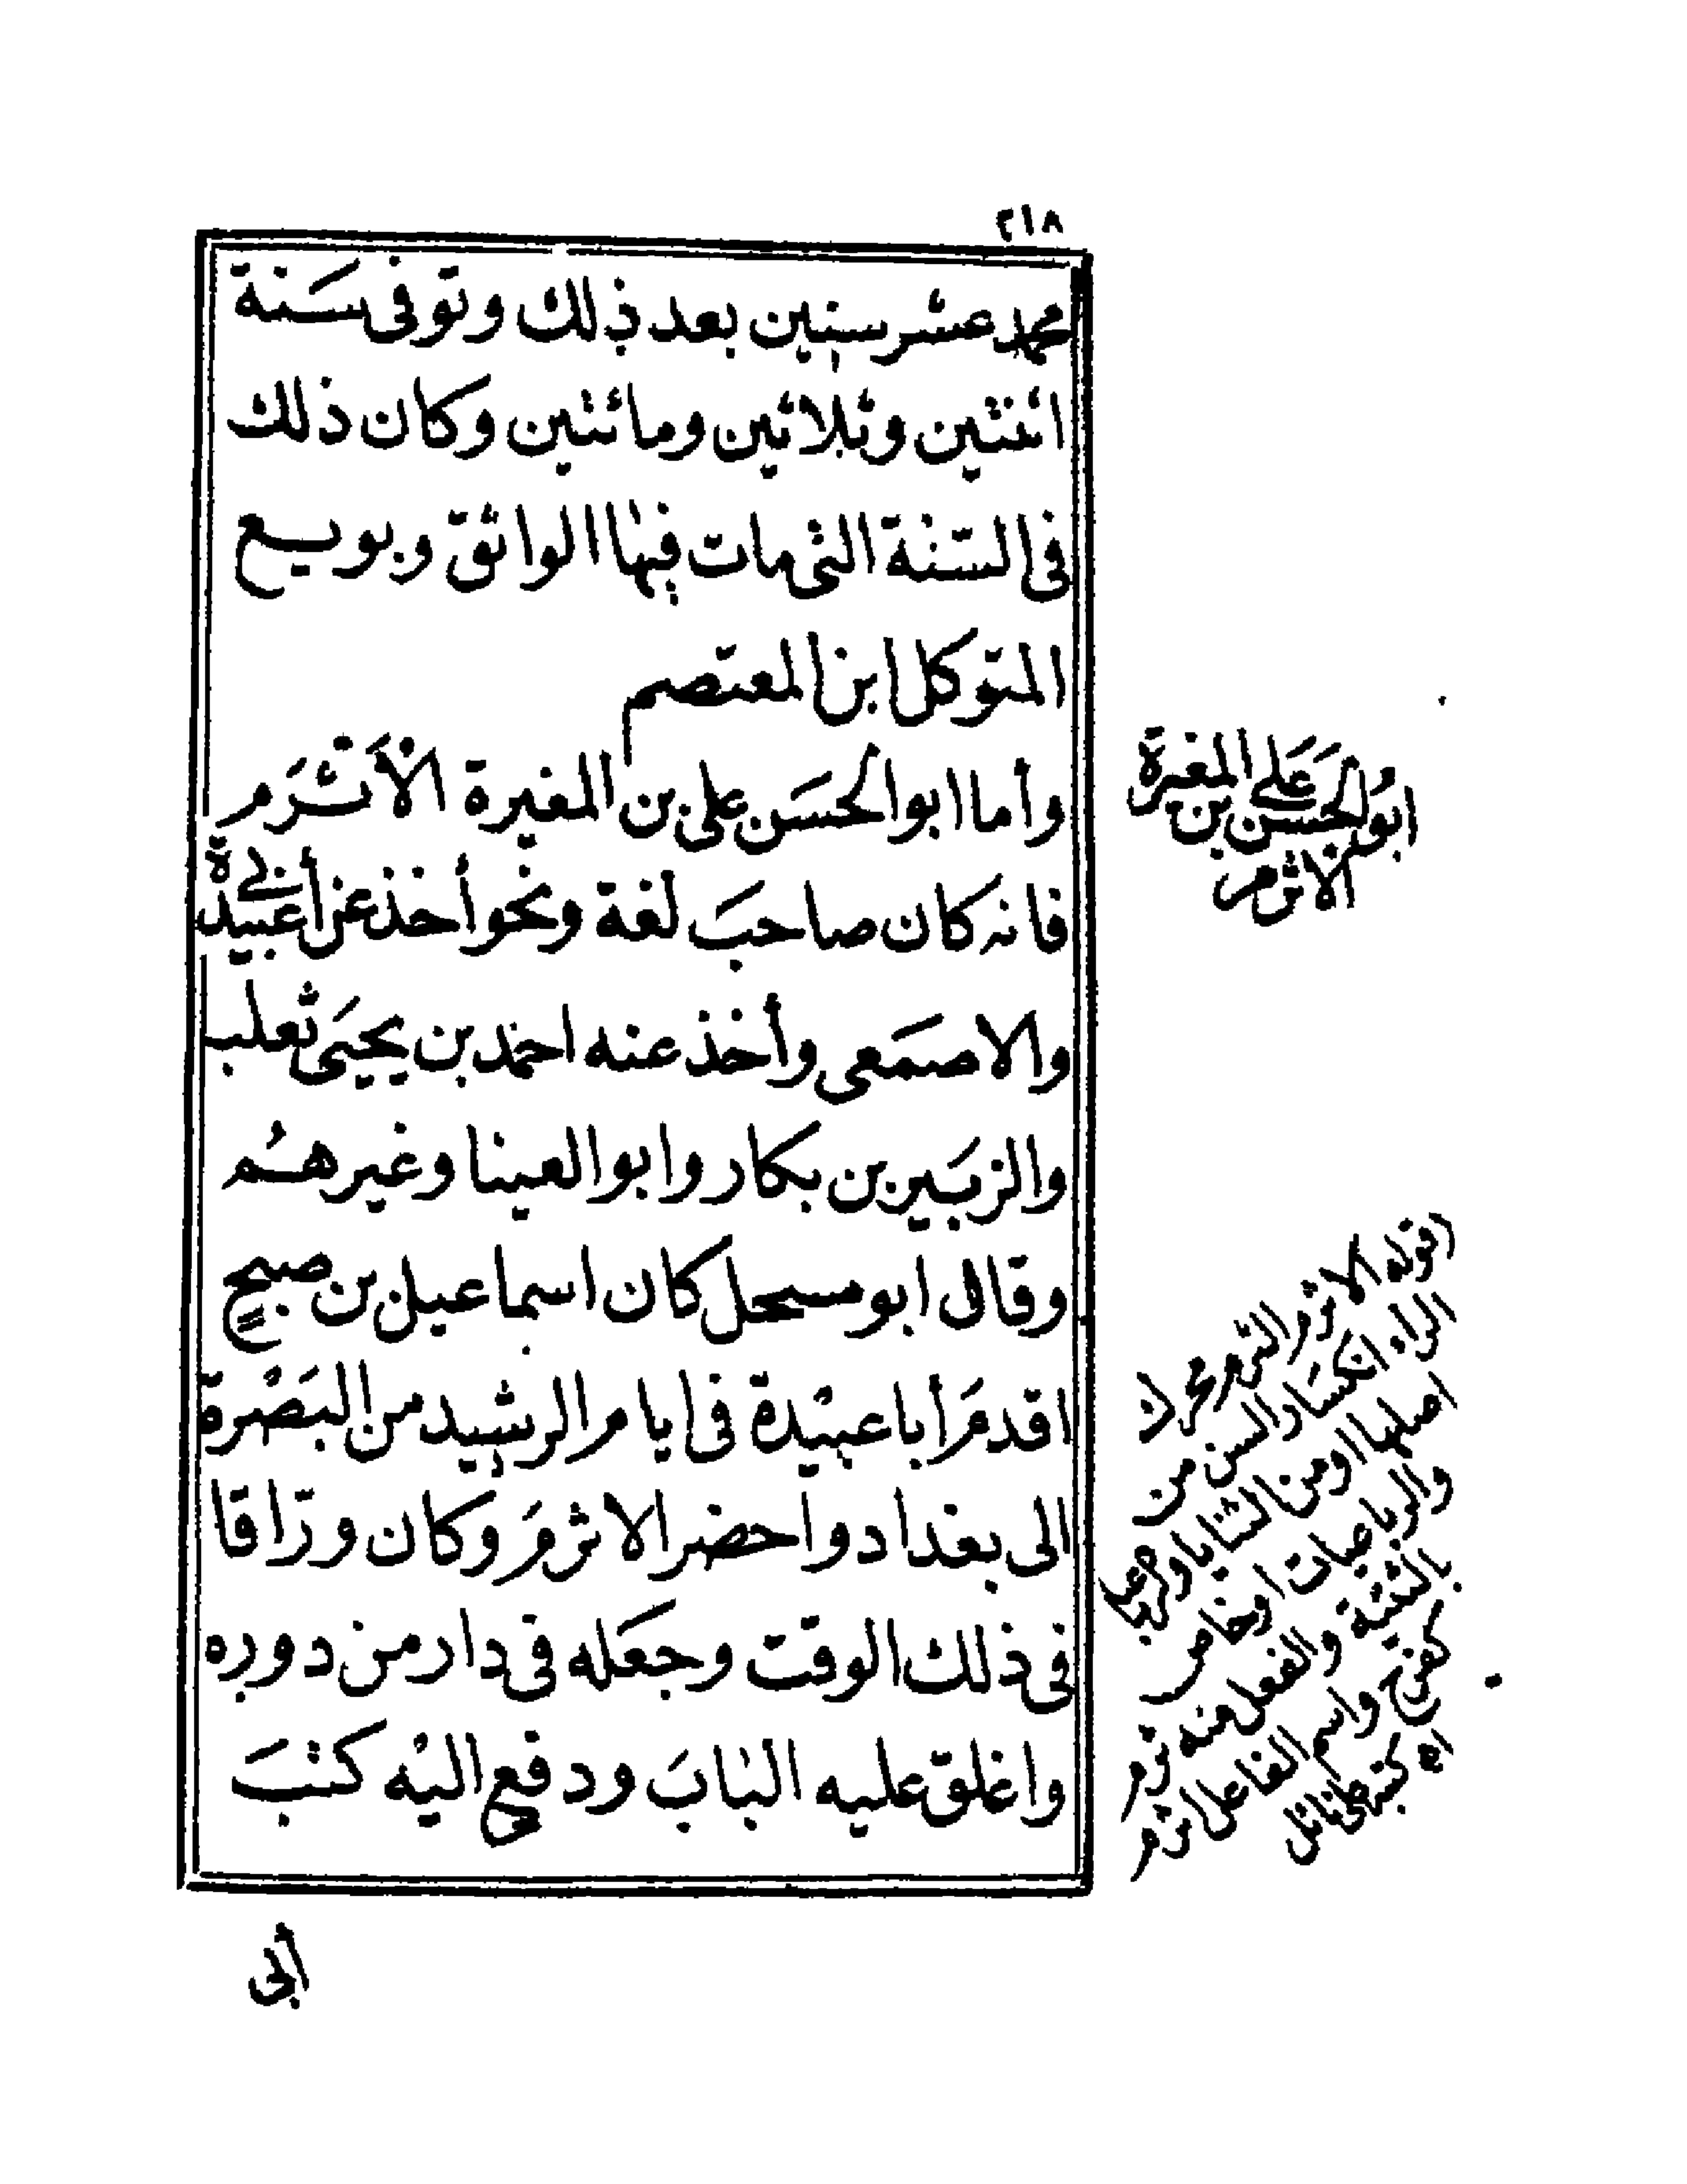 ٢١٨
محمد عشر سنين بعد ذلك وتوفى سَنة
اثنتين وثلاثين ومائتين وكان ذلك
فى السّنة التى مات فيها الواثق وبويع
المتوكل ابن المعتصم
وأما ابو الحسَن على بن المغيرة الأثرَم
فانه كان صاحبَ لغة ونحو أخذ عن أبى عبيدة
والاصمَعى وأخذ عنه احمد بن يحيَى ثعلب
والزبَير بن بكار وابو العينا وغيرهُم
وقال ابو مسحل كان اسماعيل بن صبيح
اقدمَ أبا عبيْدة فى ايام الرشيد من البَصْرة
الى بغداد واحضر الاثرمَ وكان ورّاقا
فى ذلك الوقت وجعَله فى دار من دوره
واغلق عليه البابَ ودفع اليْه كتبَ
أبى
ابو الحسَن عَلى بن المغيرة
الاثرم
(قوله الاثرم الثرم محركة)
الراء انكسار السن من
اصلها او من الثنايا والرباعيات
او خاص
بالثنية والفعل منه ثرم
كفرح واسم الفاعل اثرم
اه